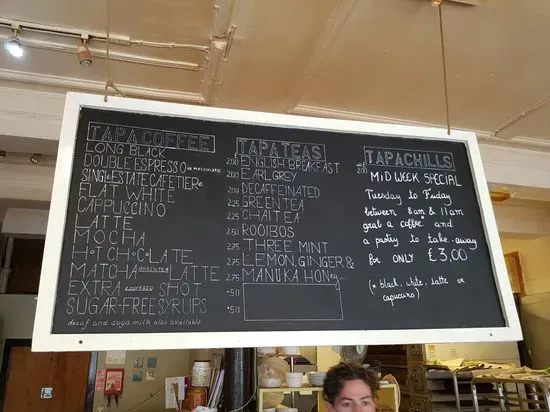 TAPACOFFEE
LONG BLACK
DOUBLE ESPRESSO OR MACCHIATO 2.00
SINGLE ESTATE CAFETIERE
FLAT WHITE 2.00
CAPPUCCINO 2.25
LATTE 2.25
MOCHA 2.50
HOT CHOCOLATE 2.25
MATCHA GREEN TEA LATTE 2.75
EXTRA ESPRESSO SHOT +50
SUGAR-FREE SYRUPS +50
decaf and soya milk also available
TAPATEAS
ENGLISH BREAKFAST
EARL GREY
DECAFFEINATED
GREEN TEA
CHAI TEA
ROOIBOS
THREE MINT
LEMON, GINGER &
MANUKA HONEY
2.00
TAPACHILLS
MID WEEK SPECIAL
Tuesday to Friday
between 8am & 11am
grab a coffee* and
a pastry to take-away
for ONLY £3.00
(* black, white, latte or
capuccino)